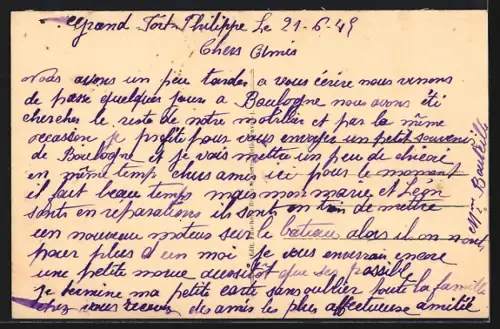 Grand Fort Philippe Le 21-6-49
Chers Amis
Nous avons un peu tardes a vous écrire nous venons
de passe quelques jours a Boulogne nous avons été
chercher le reste de notre mobilier et par la même
occasion je profite pour vous envoyer un petit souvenir
de Boulogne et je vais mettre un peu de chicoré
en même temp chers amis ici pour le moment
il fait beau temp mais mon marie et Léon
sont en réparations ils sont en train de mettre
un nouveau moteur sur le bateau alors il en n'ont
pour plus d un moi je vous enverrai encore
une petite morue aussitôt que ses possible
je termine ma petite carte sans oublier toute la famille
chez vous recevez des amis les plus affectueuse amitié
Mme Bouteille